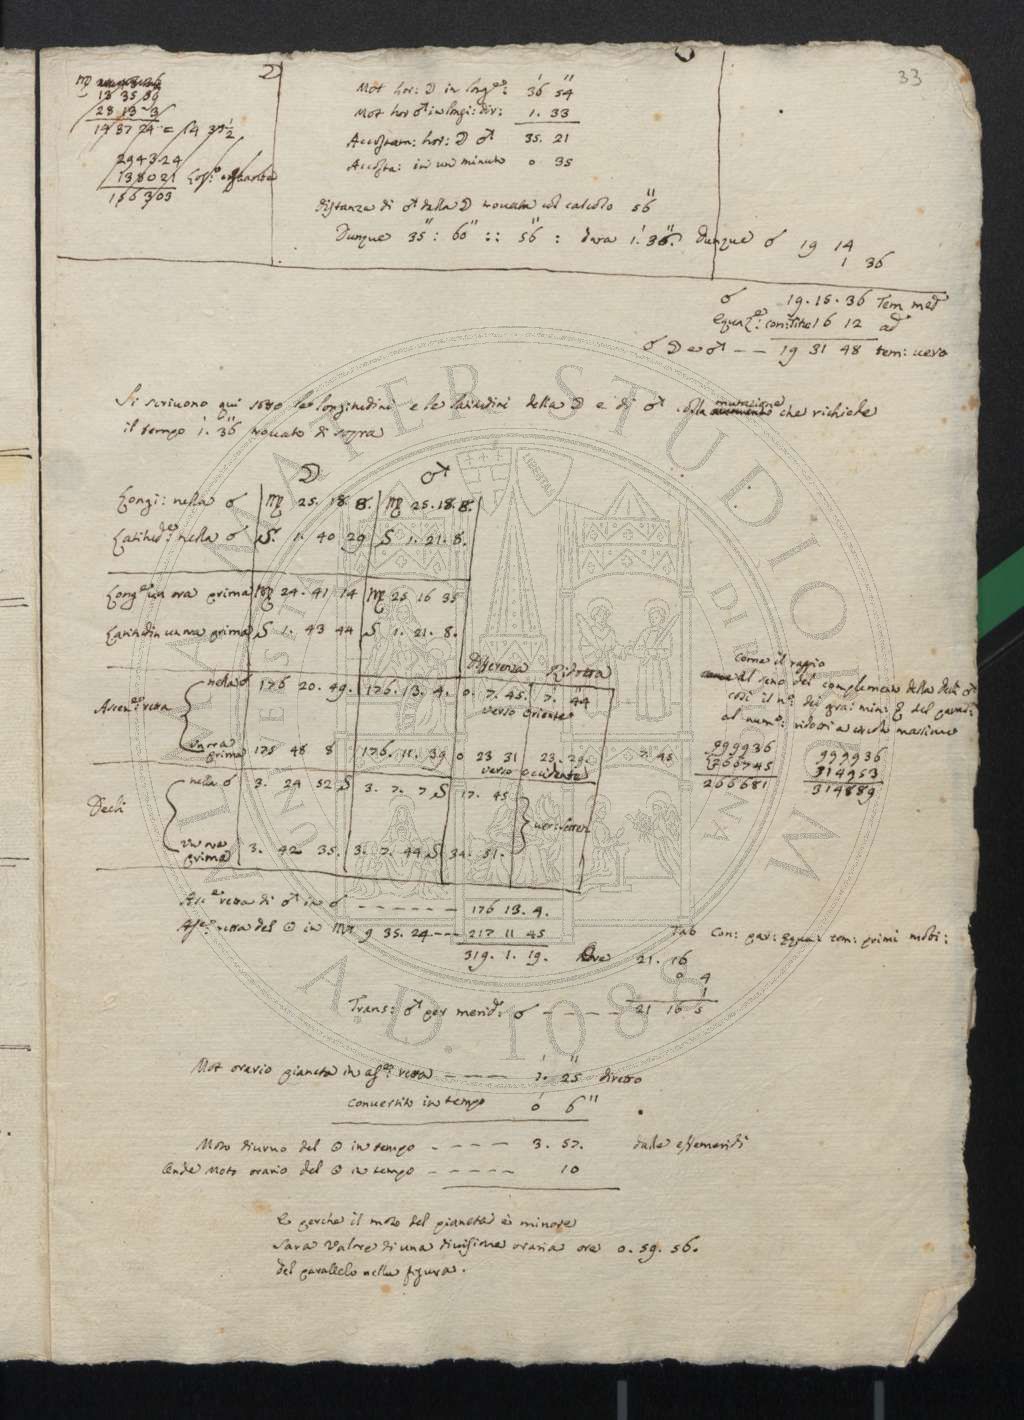 33
♍
18 35 50
28 13 3
14 37 24 = 14 37½
294324
138021
156303
Mot hor: ☽ in longne: 36' 54''
Mot hor ♂ in longi: dir: 1. 33
Accostam: hor: ☽ ♂ 35. 21
Accosta: in un minuto 0 35
distanza di ♂ dalla ☽ trovata col calcolo 56''
Dunque 35'': 60'' :: 56'' : dara 1.' 36''. Dunque ☌ 19 14
1 36
☌ 19. 15. 36 Tem. med
equaze: 16 12 ad
☌ ☽ e ♂ -- 19 31 48 tem: vero
Si scrivono qui sotto le longitudini e le latitudini della ☽ e di ♂ colla mutazione che richiede
il tempo 1.' 36'' trovato di sopra
☽ ♂
Longi: nella ☌ ♍ 25. 18. 8. ♍ 25. 18. 8.
Latitude: nella ☌ S. 1. 40 29 S 1. 21. 8.
Longne un ora prima ♍ 24. 41 14 ♍ 25 16 35
Latitudin un ora prima S 1. 43 44 S 1. 21. 8.
Differenza Ridotta
Ascenne: retta nella ☌ 176 20. 49. 176. 13. 4. 0. 7. 45. 7. 44
verso oriente
un ora prima 175 48 8 176. 11. 39 0 23 31 23. 29.
verso occidente
Decli nella ☌ 3. 24 52 S 3. 7. 7 S 17. 45
ver: setten
un ora prima 3. 42 35. 3. 7. 44 S 34. 51.
Come il raggio
al seno del complemento della decli ♂
cosi il no: dei gra: min: del paral:
al numo: ridotti a circolo massimo
7 45
999936
266745
266681
999936
314953
314889
Ascne retta di ♂ in ☌ ------ 176 13. 4.
Ascne: retta del ☉ in 9 35. 24 --- 217 11 45
319. 1. 19. Ore 21. 16
0 4
1
Tab con: par: equa: tem: primi mobi:
Trans: ♂ per merid: ☌ ---- 21 16 5
Mot orario pianeta in asne: retta ---- 1.' 25'' diretto
convertito in tempo 0' 6''
Moto diurno del ☉ in tempo - --- 3. 57. dalle effemeridi
Onde Moto orario del ☉ in tempo ----- 10
E perche il moto del pianeta è minore
sara valore di una divisione oraria ore 0. 59. 56.
del parallelo nella figura.
ALMA MATER STUDIORUM
A.D. 1088